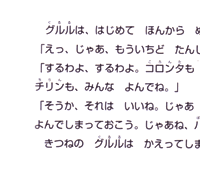 グルルは、はじめて　ほんから
「えっ、じゃあ、もういちど　たんし
「するわよ、するわよ。コロンタも
チリンも、みんな　よんでね。」
「そうか、それは　いいね。じゃあ
よんでしまっておこう。じゃあね、
きつねの　グルルは　かえってしま